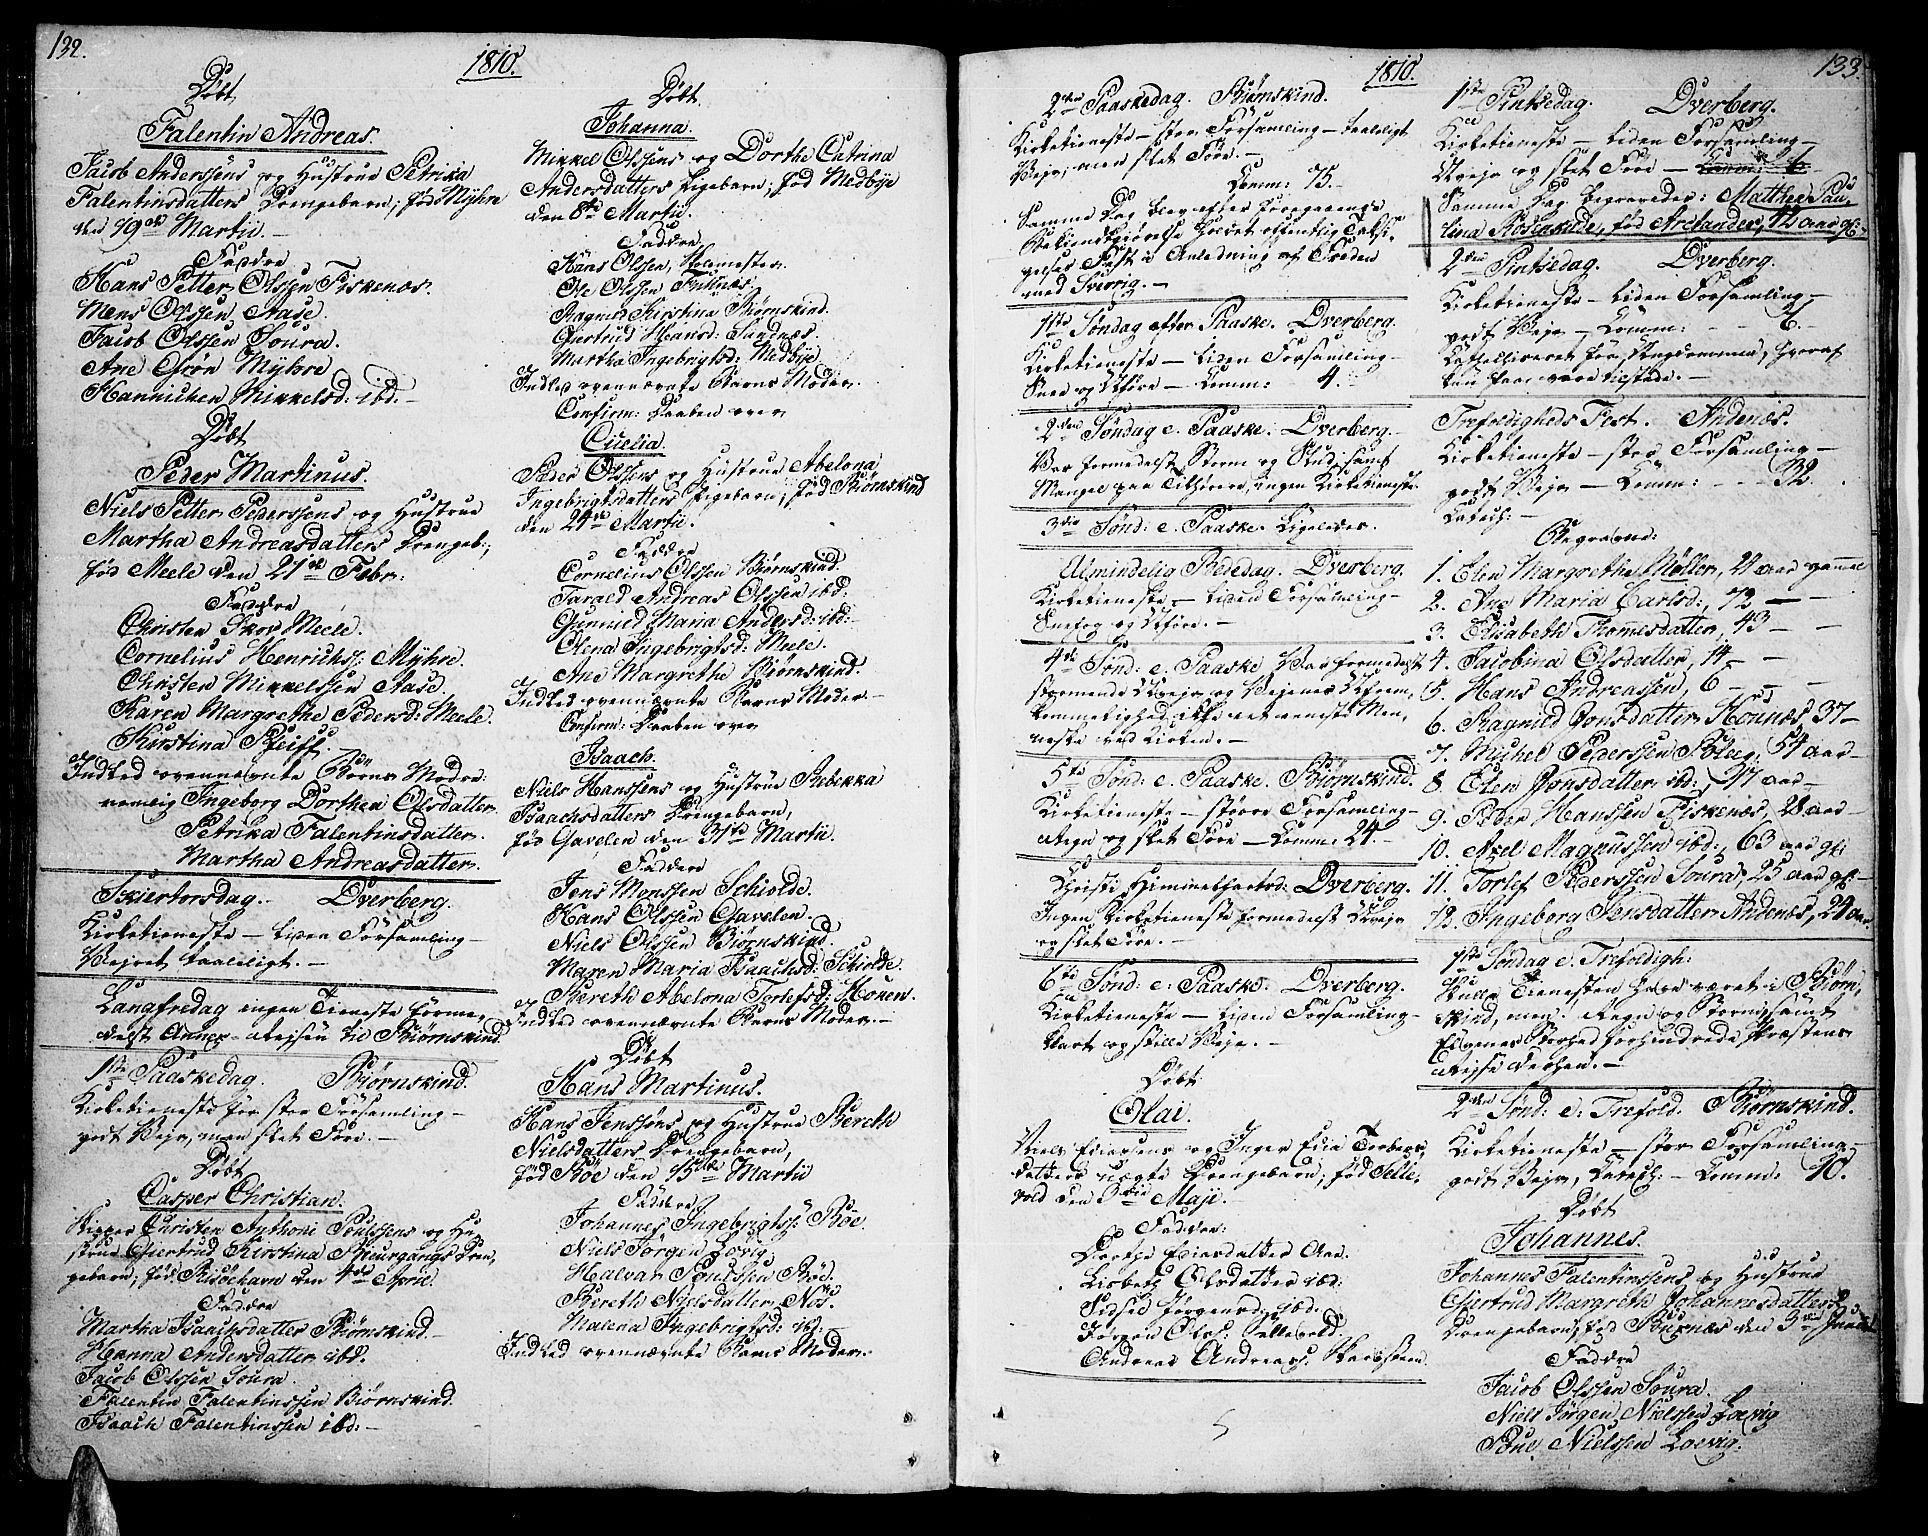 132.
1810.
Døbt
Falentin Andreas.
Jacob Anderssens og Hustrue Petrika
Falentinsdatters Drengebarn; fød Myhre
den 19de Martii. –
Faddre
Hans Petter Olssen Fiskenæs.
Mons Olssen Aase.
Jacob Olssen Soura.
Ane Grön Myhre
Hannichen Mikkelsd: ibd. –
Døbt
Peder Martinus.
Niels Petter Pederssens og Hustrue
Martha Andreasdatters Drengeb:,
fød Meele den 21de Febr:
Faddre
Christen Skov Meele.
Cornelius Henrichs: Myhre.
Christen Mikkelssen Aase.
Karen Margrethe Pedersd: Meele.
Kirstina Pfeiff.
Indled ovennævnte Børns Mødre:
nemlig Ingeborg Dorthea Olsdatter
Petrika Falentinsdatter.
Martha Andreasdatter.
Skiertorsdag. Dverberg.
Kirketieneste – liden Forsamling –
Vejret taaleligt. –
Langfredag ingen Tieneste forme,
delst Annex-Rejsen til Biørnskind.
1ste Paaskedag. Biørnskind.
Kirketieneste for stor Forsamling –
godt Vejr, men slet Føre. –
Døbt
Casper Christian.
Skipper Christen Anthoni Poulssens og Hu,
strue Giertrud Kirstina Rheurgangs Dren,
gebarn; fød Risøehavn den 4de April.
Faddre
Martha Isaachsdatter Biørnskind. –
Hanna Andersdatter ibd.
Jacob Olssen Soura.
Falentin Falentinssen Biørnskind.
Isaach Falentinssen ibd: –
Døbt
Johanna.
Mikkel Olssens og Dorthe Catrina
Andersdatters Pigebarn; fød Medbye
den 8de Martii.
Faddre
Hans Olssen, Skolemester.
Ole Olssen Fiskenæs.
Kirstina Biørnskind.
Giertrud Hansd: Sandnæs.
Martha Ingebrigtsd: Medbye
Indled ovennævnte Barns Moder.
Confirm: Daaben over
Cicelia.
Peder Olssens og Hustrue Abelona
Ingebrigtsdatters Pigebarn; fød Biørnskind
den 24de Martii.
Faddre
Cornelius Olssen Biørnskind.
Tarald Andreas Olssen ibd:
Gunnild Maria Andersd: ibd: –
Olena Ingebrigtsd: Meele.
Ane Margrethe Biørnskind.
Indled ovennævnte Barns Moder –
Confirm: Daaben over
Isaach.
Niels Hanssens og Hustrue Rebekka
Isaachsdatters Drengebarn,
fød Gavelen den 31te Martii.
Faddere
Jens Monssen Schiolde.
Hans Olssen Gavelen.
Niels Olssen Biørnskind.
Maren Maria Isaachsd: Schiolde.
Bereth Abelona Torlefsd: Mouen.
Indled ovennævnte Barns Moder. –
Døbt
Hans Martinus.
Hans Jenssøns og Hustrue Bereth
Nielsdatters Drengebarn,
fød Bøe den 15de Martii
Faddere
Johannes Ingebrigts: Bøe.
Niels Jørgen Lovig.
Halvar Poulssen Bøe.
Bereth Nielsdatter Nøs.
Malena Ingebrigtsd: ib: –
Indled ovennævnte Barns Moder. –
1810.
133.
2den Paaskedag. Biørnskind.
Kirketieneste – stor Forsamling – taaleligt
Vejr, men slet Føre. –
Comm: 75. –
Samme Dag blev efter foregaaende
Bekiendtgiørelse holdet offentlig Taksi,
gelses Fest i Anledning af Freden
med Sverrig. –
1ste Søndag efter Paaske. Dverberg.
Kirketieneste – liden Forsamling –
Snee og Uføre – Comm: 4. –
2den Søndag e. Paaske: Dverberg. –
Var formedelst Storm og Slud, samt
Mangel paa Tilhörere, ingen Kirketieneste.
3die Sønd: e. Paaske. Ligeledes.
Almindelig Bededag. Dverberg.
Kirketieneste – liden Forsamling –
Snefog og Uføre. –
4de Sønd: e. Paaske Var formedelst
stormende Uvejr og Vejenes Ufrem,
kommelighed ikke eet eeneste Men,
neske ved Kirken. –
5te Sønd: e. Paaske. Biørnskind.
Kirketieneste – större Forsamling –
Regn og slet Føre – Comm: 24. –
Christi Himmelfartsd: Dverberg.
Ingen Kirketieneste formedelst Uvejr
og slet Føre. –
6te Sønd: e: Paaske: Dverberg.
Kirketieneste – liden Forsamling –
klart og stille Vejr. –
Døbt
Olai.
Niels Ediassens og Inger Edia Torbergs,
datters uægte Drengebarn, fød Selle,
vold den 3die Maji.
Faddre:
Dorthe Ediasdatter Aae.
Lisbeth Olsdatter ibd:
Sidsel Jørgensd: ibd.
Jørgen Ols: Sellevold.
Andreas Andreass: Skarsteen.
1ste Pintsedag. Dverberg.
Kirketieneste – liden Forsamling –
Uvejr og slet Føre – Comm: 6.
Samme Dag begravedes: Mathea Pau,
lina Rosenkilde, fød Arctander, 12 aar gl: –
2den Pintsedag. Dverberg.
Kirketieneste – liden Forsamling –
godt Vejr – Comm: – – – 6. –
Catheliseret for Ungdommen, hvoraf
kun faae vare tilstede. –
Trefoldigheds Fest. Andenæs.
Kirketieneste – stor Forsamling –
godt Vejr – Comm: – – – 32.
Catech: –
Begravne:
1. Elen Margrethe Møller, 21 aar gammel
2. Ane Maria Carlsd:, 72 – –
3. Elisabeth Thomesdatter, 43 – –
4. Jacobina Olsdatter, 14 – –
5. Hans Andreassen, 6 – – –
6. Ragnild Jonsdatter Hounæs 37 –
7. Michel Pederssen Bleeg, 54 aar –
8. Elen Jonsdatter ibd: 27 aar –
9. Peder Hanssen Fiskenæs, 21 aar –
10. Axel Magnussen ibd:, 63 aar gl:
11. Torlef Pederssen Soura, 25 aar gl: –
12. Ingeborg Jensdatter Andenæs, 29 aar.
1ste Søndag e. Trefoldigh:
Skulle Tienesten have været i Biørn,
skind, men Regn og Storm, samt
Elvenes Storhed forhindrede Præstens
Rejse derhen. –
2den Sønd: e. Trefold. Biørnskind.
Kirketieneste – stor Forsamling –
godt Vejr, Catech: – Comm: 90.
Døbt
Johannes.
Johannes Falentinssens og Hustrue
Giertrud Margreth Johannesdatters
Drengebarn, fød Buxnæs den 3die Junii
Faddre
Jacob Olssen Soura.
Niels Jørgen Nielssen Loevig
Poue Nielssen Loevig.